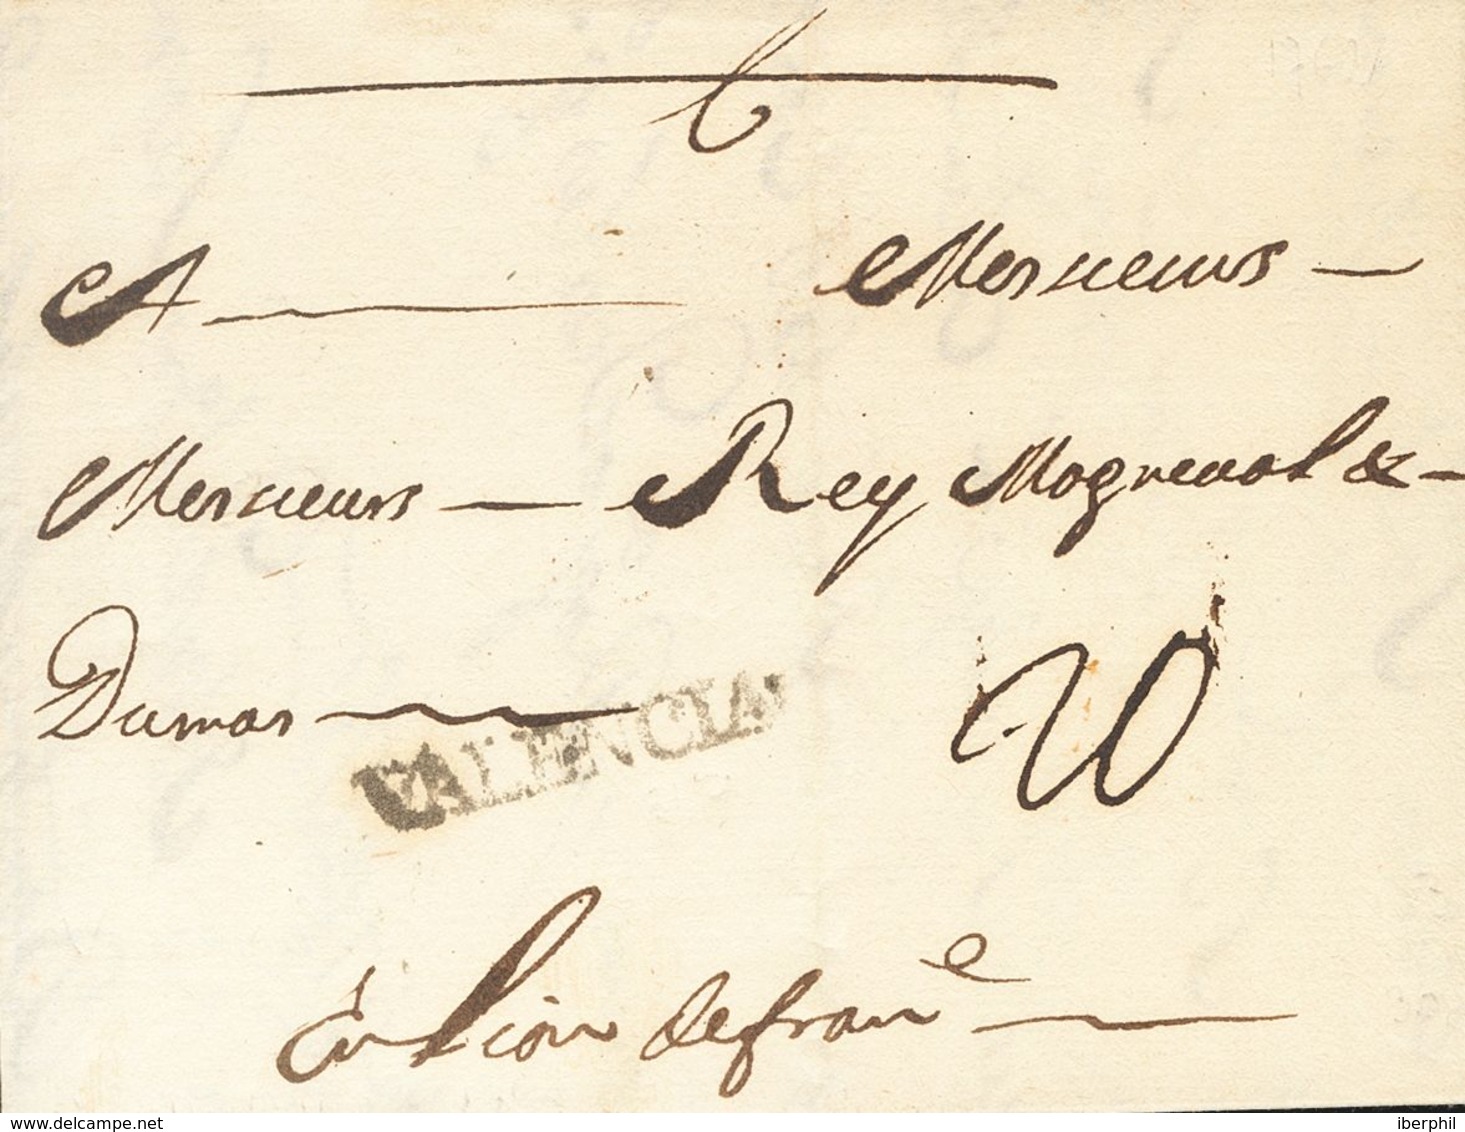 A Messieurs
Messieurs Rey Magneval &
Dumas
VALENCIA
En Lion de franᵉ
www.delcampe.net
iberphil